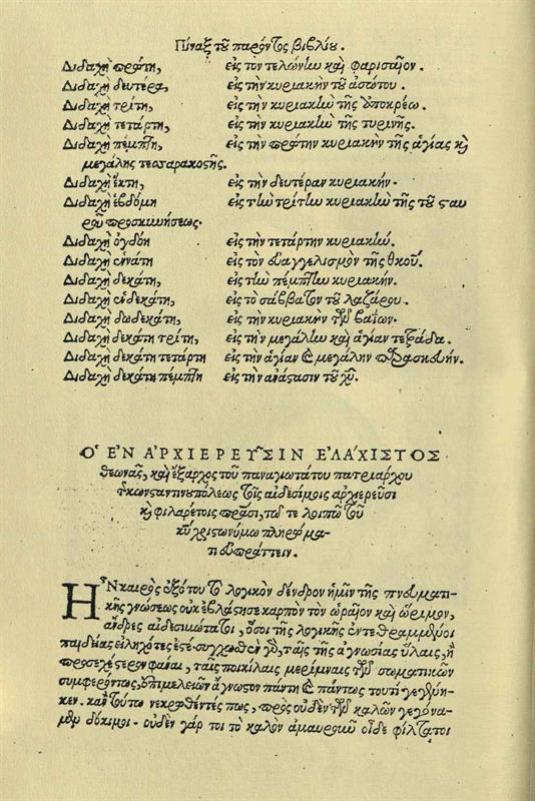 Πίναξ τοῦ παρόντος βιβλίου.
Διδαχὴ πρώτη, εἰς τὸν τελώνην καὶ φαρισαῖον.
Διδαχὴ δευτέρα, εἰς τὴν κυριακὴν τοῦ ἀσώτου.
Διδαχὴ τρίτη, εἰς τὴν κυριακὴν τῆς ἀποκρέω.
Διδαχὴ τετάρτη, εἰς τὴν κυριακὴν τῆς τυρινῆς.
Διδαχὴ πέμπτη, εἰς τὴν πρώτην κυριακὴν τῆς ἁγίας καὶ
μεγάλης τεσσαρακοστῆς.
Διδαχὴ ἕκτη, εἰς τὴν δευτέραν κυριακήν.
Διδαχὴ ἑβδόμη εἰς τὴν τρίτην κυριακὴν τῆς τοῦ σταυ
ροῦ προσκυνήσεως.
Διδαχὴ ὀγδόη εἰς τὴν τετάρτην κυριακήν.
Διδαχὴ ἐννάτη εἰς τὸν εὐαγγελισμὸν τῆς θκου.
Διδαχὴ δεκάτη, εἰς τὴν πέμπτην κυριακήν.
Διδαχὴ ἑνδεκάτη, εἰς τὸ σάββατον τοῦ λαζάρου.
Διδαχὴ δωδεκάτη, εἰς τὴν κυριακὴν τῶν βαΐων.
Διδαχὴ δεκάτη τρίτη, εἰς τὴν μεγάλην καὶ ἁγίαν τετράδα.
Διδαχὴ δεκάτη τετάρτη εἰς τὴν ἁγίαν καὶ μεγάλην παρασκευήν.
Διδαχὴ δεκάτη πέμπτη εἰς τὴν ἀνάστασιν τοῦ χυ.
Ὁ ἘΝ ἈΡΧΙΕΡΕΥΣΙΝ ἘΛΆΧΙΣΤΟΣ
θεωνᾶς, καὶ ἔξαρχος τοῦ παναγιωτάτου πατριάρχου
κωνσταντινουπόλεως τοῖς αἰδεσίμοις ἀρχιερεῦσι
καὶ φιλαρέτοις πᾶσι, τῷ τε λοιπῷ τοῦ
κυ χριστωνύμῳ πληρώμα-
τι εὐπράττειν.
Ἦν καιρὸς ἐξότου τὸ λογικὸν δένδρον ἡμῖν τῆς πνευματι-
κῆς γνώσεως οὐκ ἐβλάστησε καρπὸν τὸν ὡραῖον καὶ ὥριμον,
ἄνδρες αἰδεσιμώτατοι, ὅσοι τῆς λογικῆς ἐντεθραμμένοι
παιδείας εἰληφότες ἐστέ· συγχωθὲν γὰρ, ταῖς τῆς ἀγνωσίας ὕλαις, ἢ
προσεχέστερον φάναι, ταῖς ποικίλαις μερίμναις τῶν σωματικῶν
συμφερόντως, ἐπιμελειῶν ἄγνωστον πάντη καὶ πάντως τουτὶ γεγένη-
κεν. καὶ τούτῳ νεκρωθέντές πως, πρὸς οὐδὲν τῶν καλῶν γεγόνα-
μεν δόκιμοι. οὐδὲν γάρ τοι τὸ καλὸν ἀμαυροῦν οἶδε φίλτατοι